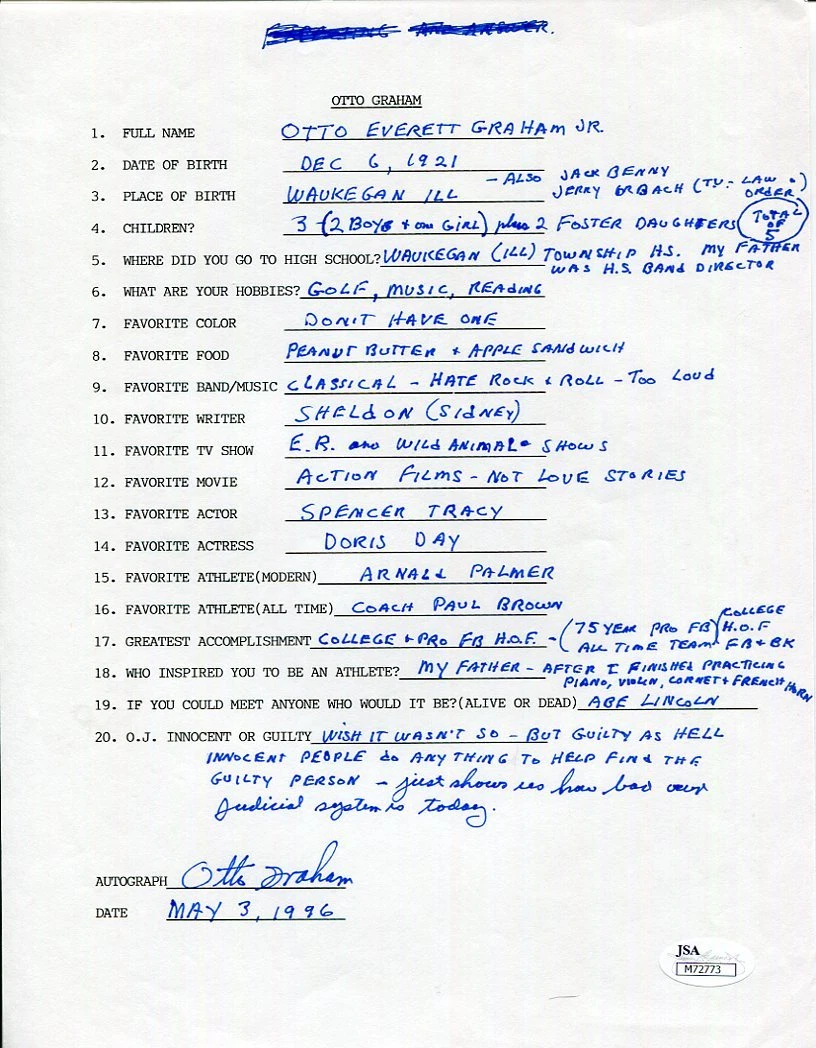 OTTO GRAHAM
1. FULL NAME OTTO EVERETT GRAHAM JR.
2. DATE OF BIRTH DEC 6, 1921
- ALSO JACK BENNY
3. PLACE OF BIRTH WAUKEGAN ILL JERRY ORBACH (TV - LAW & ORDER)
4. CHILDREN? 3 - (2 BOYS + one GIRL) plus 2 FOSTER DAUGHTERS TOTAL OF 5
5. WHERE DID YOU GO TO HIGH SCHOOL? WAUKEGAN (ILL) TOWNSHIP H.S. MY FATHER
WAS H.S. BAND DIRECTOR
6. WHAT ARE YOUR HOBBIES? GOLF, MUSIC, READING
7. FAVORITE COLOR DON'T HAVE ONE
8. FAVORITE FOOD PEANUT BUTTER + APPLE SANDWICH
9. FAVORITE BAND/MUSIC CLASSICAL - HATE ROCK & ROLL - TOO LOUD
10. FAVORITE WRITER SHELDON (SIDNEY)
11. FAVORITE TV SHOW E.R. and WILD ANIMAL SHOWS
12. FAVORITE MOVIE ACTION FILMS - NOT LOVE STORIES
13. FAVORITE ACTOR SPENCER TRACY
14. FAVORITE ACTRESS DORIS DAY
15. FAVORITE ATHLETE(MODERN) ARNALD PALMER
16. FAVORITE ATHLETE(ALL TIME) COACH PAUL BROWN
17. GREATEST ACCOMPLISHMENT COLLEGE + PRO FB H.O.F. - (75 YEAR PRO FB ALL TIME TEAM) COLLEGE H.O.F FB + BK
18. WHO INSPIRED YOU TO BE AN ATHLETE? MY FATHER - AFTER I FINISHED PRACTICING
PIANO, VIOLIN, CORNET + FRENCH HORN
19. IF YOU COULD MEET ANYONE WHO WOULD IT BE?(ALIVE OR DEAD) ABE LINCOLN
20. O.J. INNOCENT OR GUILTY WISH IT WASN'T SO - BUT GUILTY AS HELL
INNOCENT PEOPLE do ANYTHING TO HELP FIND THE
GUILTY PERSON - just shows us how bad our
Judicial system is today.
AUTOGRAPH Otto Graham
DATE MAY 3, 1996
JSA
M72773